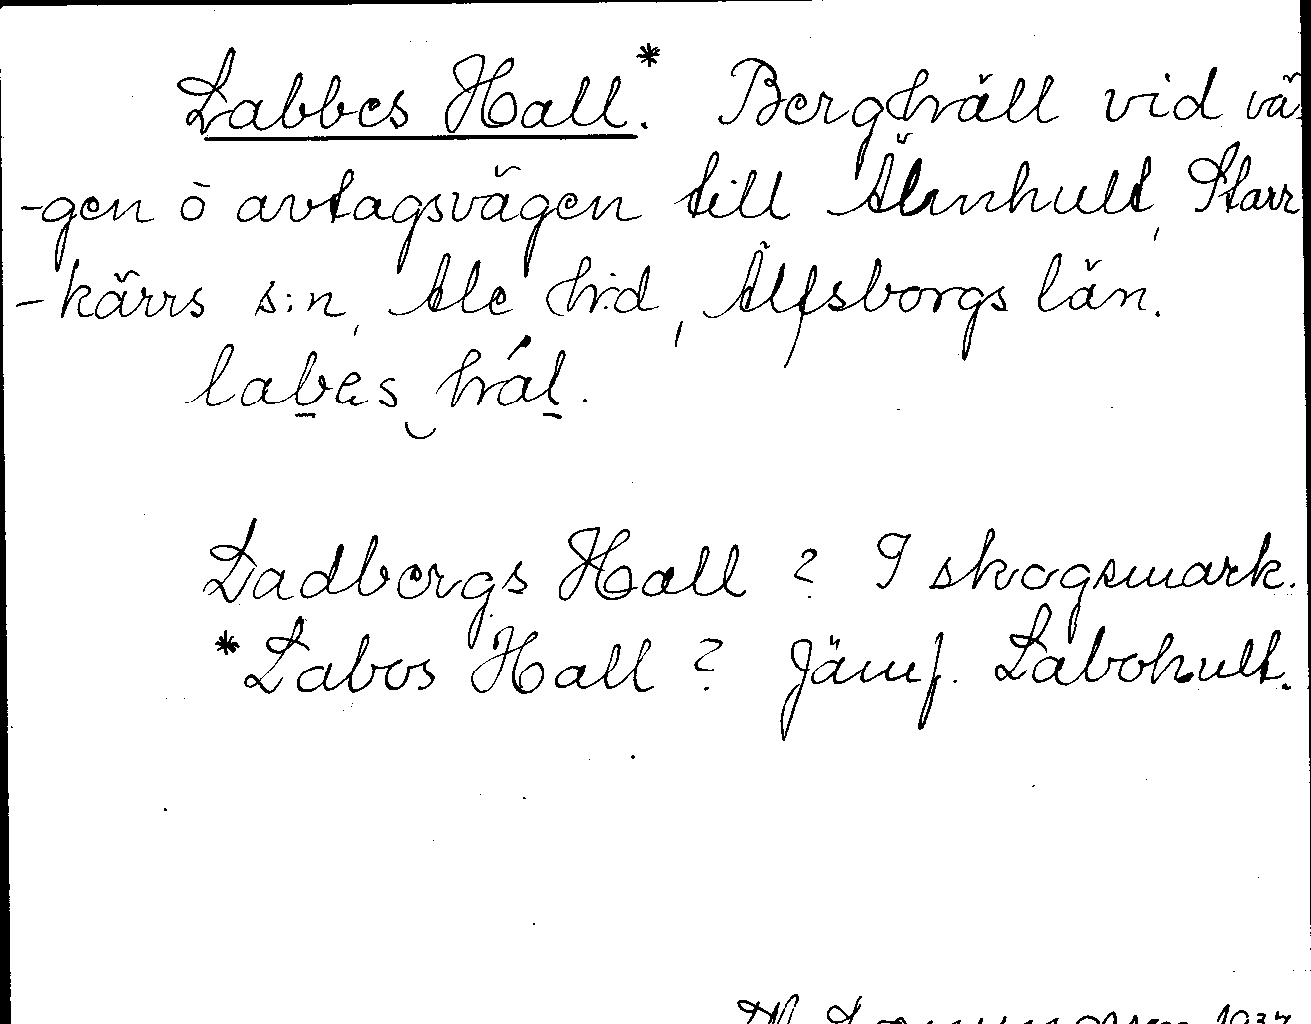 Labbes Hall.* Berghäll vid vä-
-gen ö avtagsvägen till Älmhult, Starr
-kärrs s:n, Ale h:d, Älfsborgs län.
labɐs hál.
Ladbergs Hall ? I skogsmark.
*Labos Hall ? Jämf. Labohult.
1937